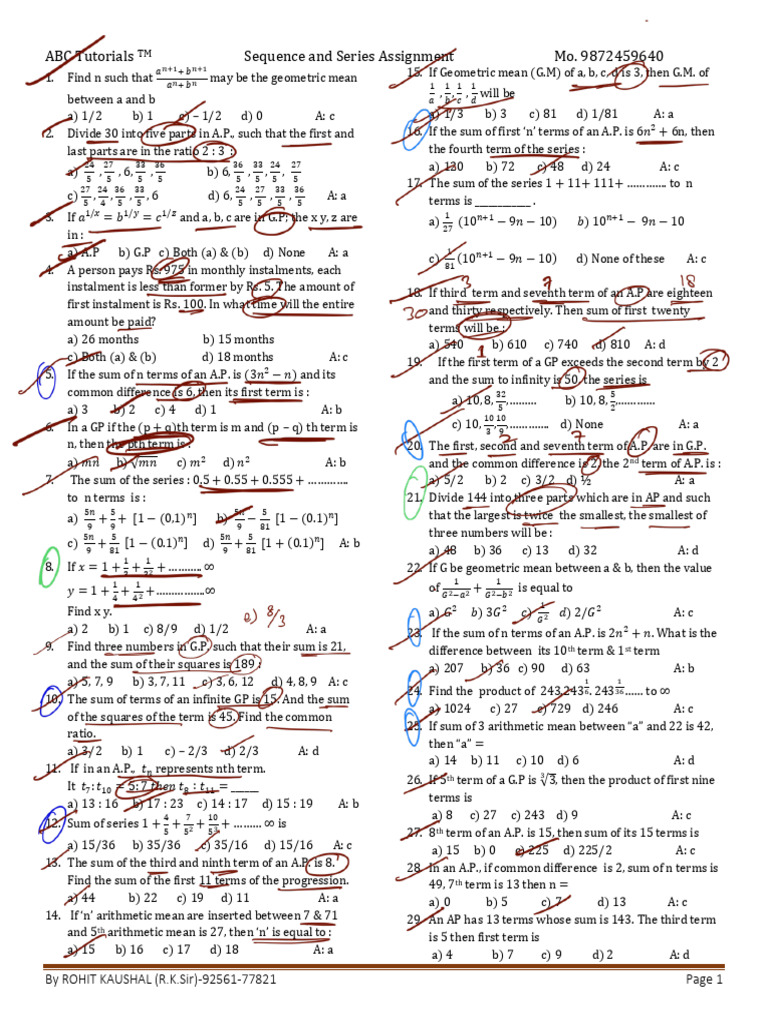 ABC Tutorials TM Sequence and Series Assignment Mo. 9872459640
1. Find n such that (a^{n+1} + b^{n+1})/(a^n + b^n) may be the geometric mean
between a and b
a) 1/2 b) 1 c) – 1/2 d) 0 A: c
2. Divide 30 into five parts in A.P., such that the first and
last parts are in the ratio 2 : 3 :
a) 24/5, 27/5, 6, 33/5, 36/5 b) 6, 36/5, 33/5, 24/5, 27/5
c) 27/5, 24/5, 36/5, 33/5, 6 d) 6, 24/5, 27/5, 33/5, 36/5 A: a
3. If a^{1/x} = b^{1/y} = c^{1/z} and a, b, c are in G.P; the x y, z are
in :
a) A.P b) G.P c) Both (a) & (b) d) None A: a
4. A person pays Rs. 975 in monthly instalments, each
instalment is less than former by Rs. 5. The amount of
first instalment is Rs. 100. In what time will the entire
amount be paid?
a) 26 months b) 15 months
c) Both (a) & (b) d) 18 months A: c
5. If the sum of n terms of an A.P. is (3n² − n) and its
common difference is 6, then its first term is :
a) 3 b) 2 c) 4 d) 1 A: b
6. In a GP if the (p + q)th term is m and (p – q) th term is
n, then the pth term is :
a) mn b) √mn c) m² d) n² A: b
7. The sum of the series : 0.5 + 0.55 + 0.555 + ………….
to n terms is :
a) 5n/9 + 5/9 + [1 − (0.1)^n] b) 5n/9 − 5/81 [1 − (0.1)^n]
c) 5n/9 + 5/81 [1 − (0.1)^n] d) 5n/9 + 5/81 [1 + (0.1)^n] A: b
8. If x = 1 + 1/3 + 1/3² + ……….. ∞
y = 1 + 1/4 + 1/4² + ……………∞
Find x y.
e) 8/3
a) 2 b) 1 c) 8/9 d) 1/2 A: a
9. Find three numbers in G.P. such that their sum is 21,
and the sum of their squares is 189 :
a) 5, 7, 9 b) 3, 7, 11 c) 3, 6, 12 d) 4, 8, 9 A: c
10. The sum of terms of an infinite GP is 15. And the sum
of the squares of the term is 45. Find the common
ratio.
a) 3/2 b) 1 c) – 2/3 d) 2/3 A: d
11. If in an A.P., t_n represents nth term.
It t₇: t₁₀ = 5: 7 then t₈ : t₁₁ = _____
a) 13 : 16 b) 17 : 23 c) 14 : 17 d) 15 : 19 A: b
12. Sum of series 1 + 4/5 + 7/5² + 10/5³ + ……… ∞ is
a) 15/36 b) 35/36 c) 35/16 d) 15/16 A: c
13. The sum of the third and ninth term of an A.P. is 8.
Find the sum of the first 11 terms of the progression.
a) 44 b) 22 c) 19 d) 11 A: a
14. If ‘n’ arithmetic mean are inserted between 7 & 71
and 5th arithmetic mean is 27, then ‘n’ is equal to :
a) 15 b) 16 c) 17 d) 18 A: a
15. If Geometric mean (G.M) of a, b, c, d is 3, then G.M. of
1/a, 1/b, 1/c, 1/d will be
a) 1/3 b) 3 c) 81 d) 1/81 A: a
16. If the sum of first ‘n’ terms of an A.P. is 6n² + 6n, then
the fourth term of the series :
a) 120 b) 72 c) 48 d) 24 A: c
17. The sum of the series 1 + 11+ 111+ ………… to n
terms is _________ .
a) 1/27 (10^{n+1} − 9n − 10) b) 10^{n+1} − 9n − 10
c) 1/81 (10^{n+1} − 9n − 10) d) None of these A: c
3 7 18
18. If third term and seventh term of an A.P are eighteen
30 and thirty respectively. Then sum of first twenty
terms will be :
a) 540 b) 610 c) 740 d) 810 A: d
1
19. If the first term of a GP exceeds the second term by 2
and the sum to infinity is 50 the series is
a) 10, 8, 32/5, ……… b) 10, 8, 5/2, …………
c) 10, 10/3, 10/9, ………….. d) None A: a
3 7
20. The first, second and seventh term of A.P. are in G.P.
and the common difference is 2, the 2nd term of A.P. is :
a) 5/2 b) 2 c) 3/2 d) ½ A: a
21. Divide 144 into three parts which are in AP and such
that the largest is twice the smallest, the smallest of
three numbers will be :
a) 48 b) 36 c) 13 d) 32 A: d
22. If G be geometric mean between a & b, then the value
of 1/(G²−a²) + 1/(G²−b²) is equal to
a) G² b) 3G² c) 1/G² d) 2/G² A: c
23. If the sum of n terms of an A.P. is 2n² + n. What is the
difference between its 10th term & 1st term
a) 207 b) 36 c) 90 d) 63 A: b
24. Find the product of 243.243^{1/6}. 243^{1/36} …… to ∞
a) 1024 c) 27 e) 729 d) 246 A: c
25. If sum of 3 arithmetic mean between “a” and 22 is 42,
then “a” =
a) 14 b) 11 c) 10 d) 6 A: d
26. If 5th term of a G.P is ∛3, then the product of first nine
terms is
a) 8 c) 27 c) 243 d) 9 A: c
27. 8th term of an A.P. is 15, then sum of its 15 terms is
a) 15 b) 0 c) 225 d) 225/2 A: c
28. In an A.P., if common difference is 2, sum of n terms is
49, 7th term is 13 then n =
a) 0 b) 5 c) 7 d) 13 A: c
29. An AP has 13 terms whose sum is 143. The third term
is 5 then first term is
a) 4 b) 7 c) 9 d) 2 A: d
By ROHIT KAUSHAL (R.K.Sir)-92561-77821 Page 1